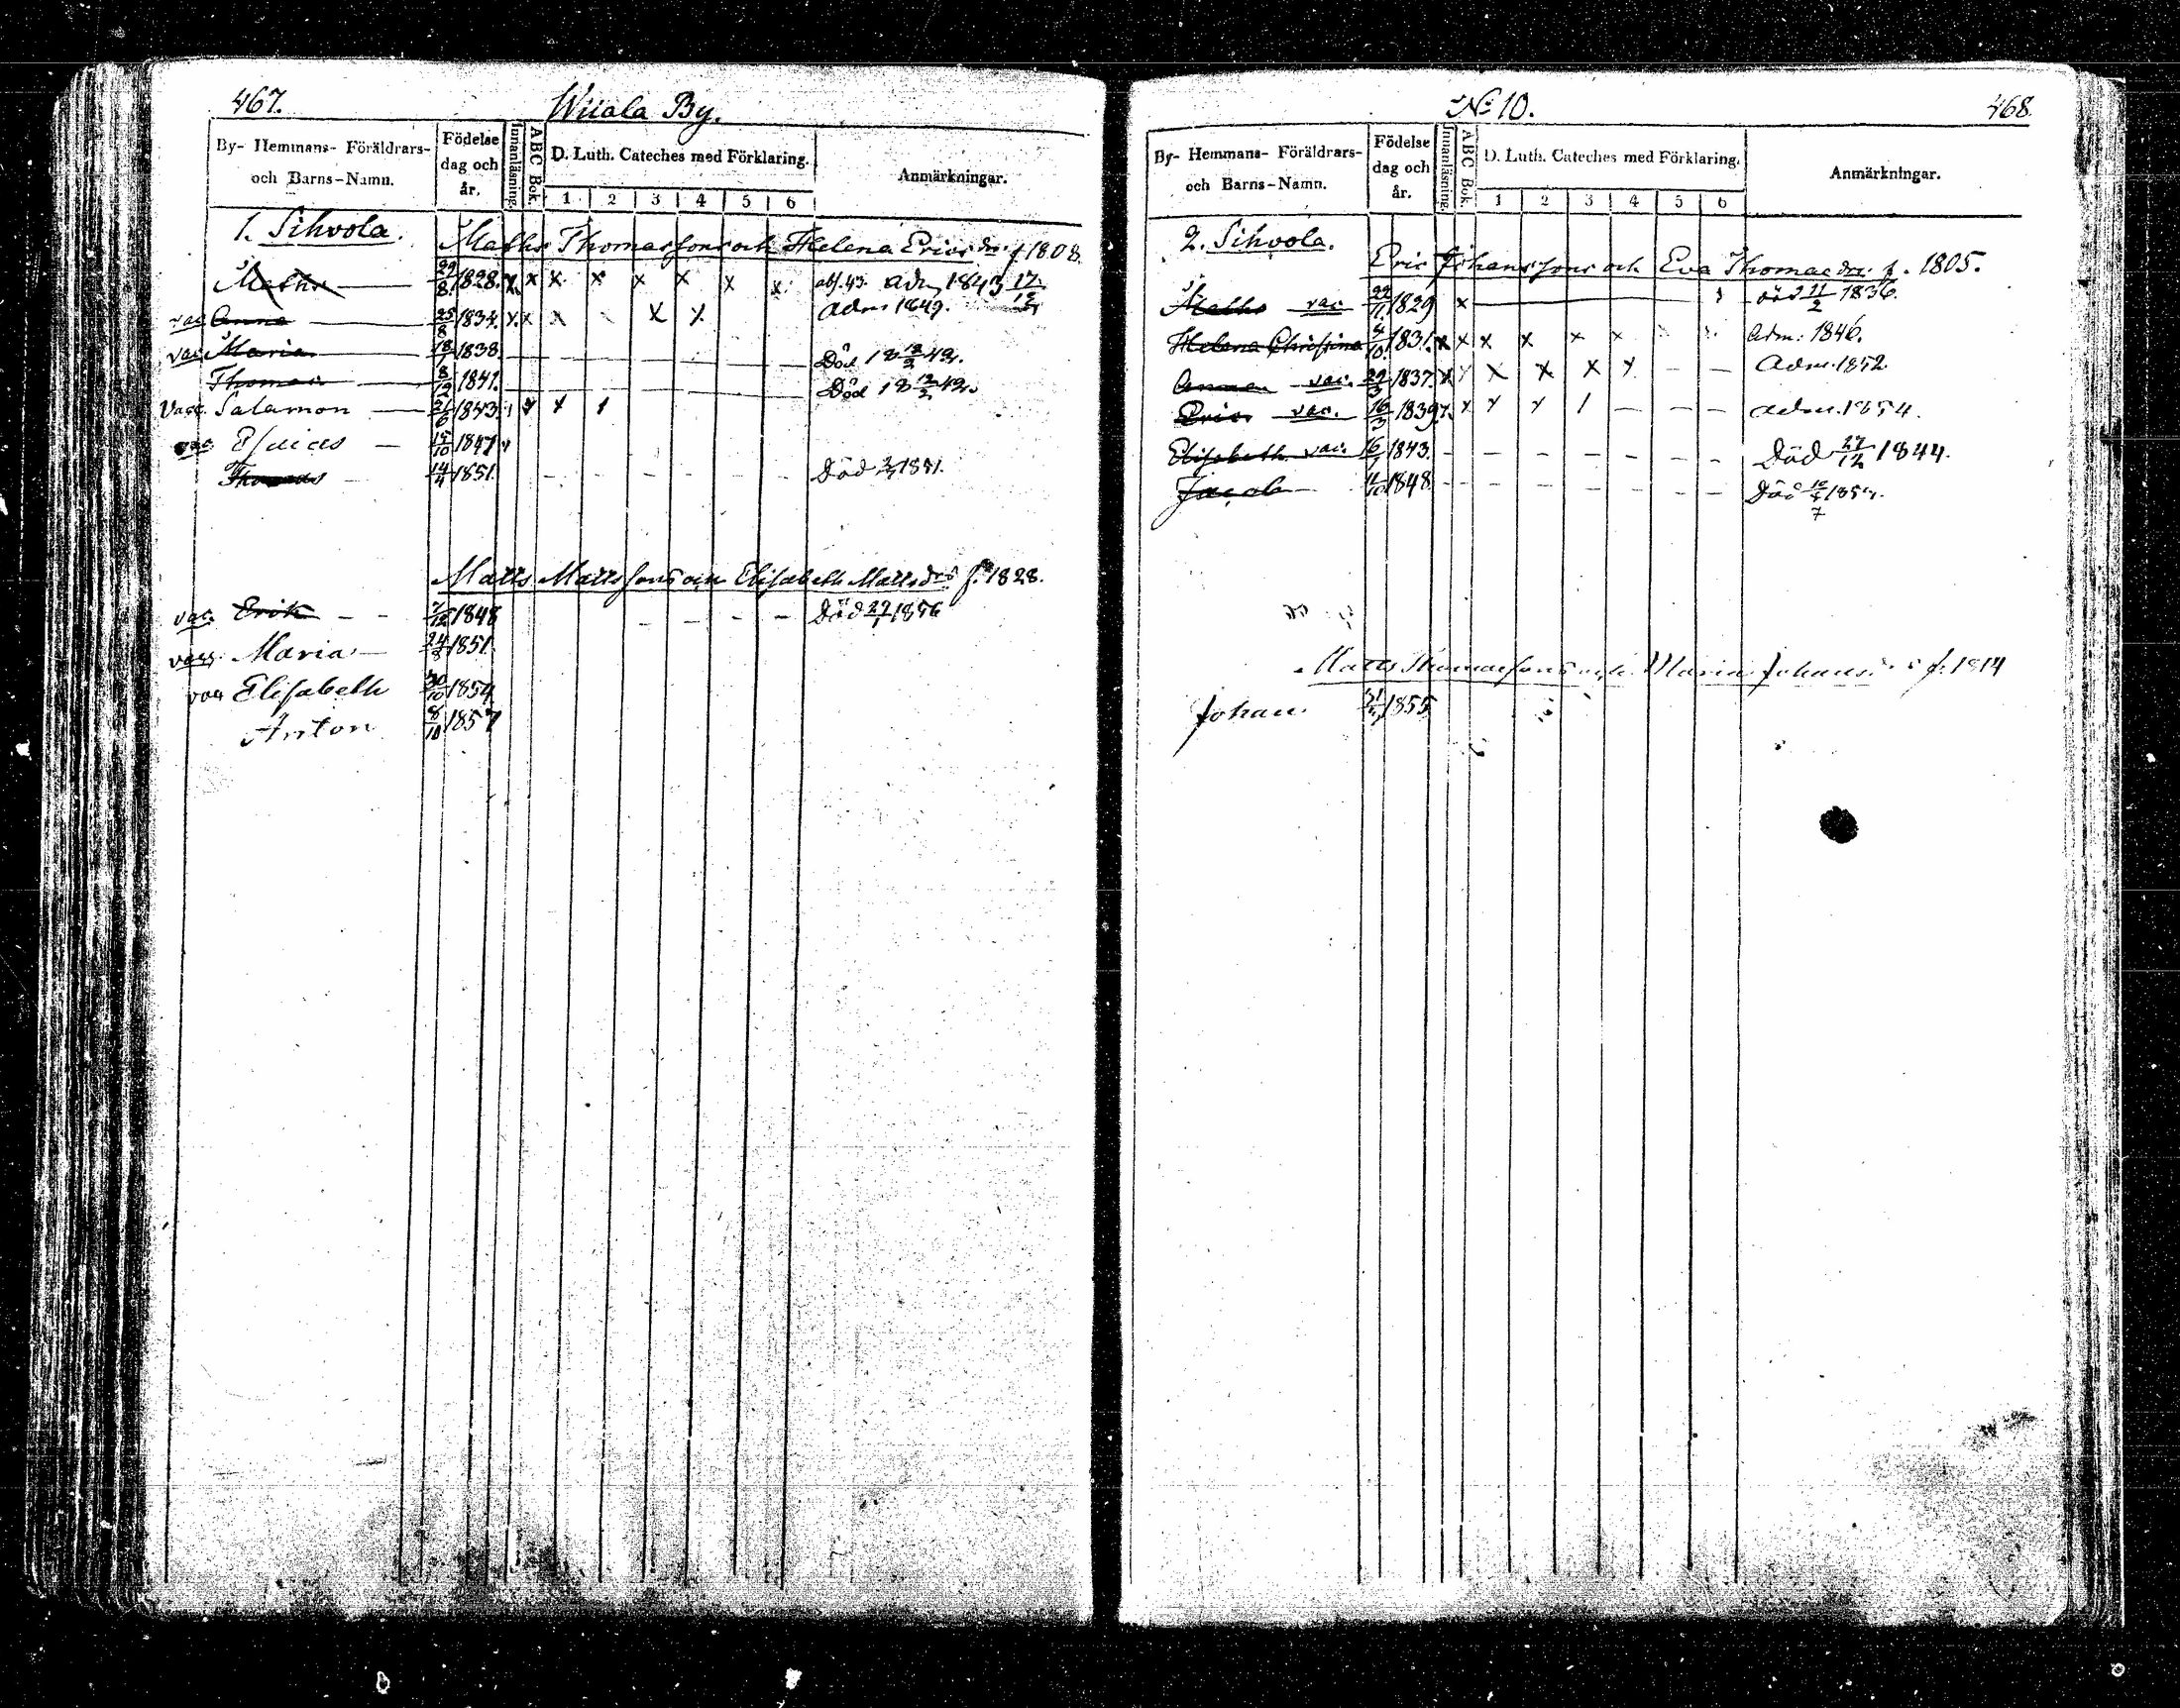 467. Wiiala By.
By- Hemmans- Föräldrars- och Barns-Namn. Födelse dag och år. Innanläsning. ABC Bok. D. Luth. Cateches med Förklaring. Anmärkningar.
1 2 3 4 5 6
1. Sihvola.
Maths Thomassons och Helena Ericsdrs. f 1808.
Maths 29/8 1828. x x x x x x x x abs. 43. adm 1843
vac Anna 25/8 1834. x x x x x adm 1849.
vac Maria 18/7 1838. Död 18 12/2 42.
Thomas 8/12 1841. Död 18 12/2 42.
Vacc. Salamon 21/6 1843.
vac Esaias 15/10 1847
Thomas 14/4 1851. Död 1851.
Matts Mattssons och Elisabeth Mattsdrs f. 1828.
vac. Erik 7/12 1848 Död 27/1 1856
vacc. Maria 24/8 1851.
vac Elisabeth 30/10 1854
Anton 8/10 1857
No 10. 468
By- Hemmans- Föräldrars- och Barns-Namn. Födelse dag och år. Innanläsning. ABC Bok. D. Luth. Cateches med Förklaring. Anmärkningar.
1 2 3 4 5 6
2. Sihvola.
Eric Johanssons och Eva Thomasdrs. f. 1805.
Maths vac 22/11 1829 x död 11/2 1836.
Helena Christina 4/10 1831. x x x x x x Adm: 1846.
Anna vac. 29/3 1837. x x x x x x Adm. 1852.
Eric vac. 16/3 1839. adm. 1854.
Elisabeth vac. 16/7 1843. Död 27/12 1844.
Jacob 1848. Död
Matts Thomassons och Maria Johans f. 1814
Johan 1855